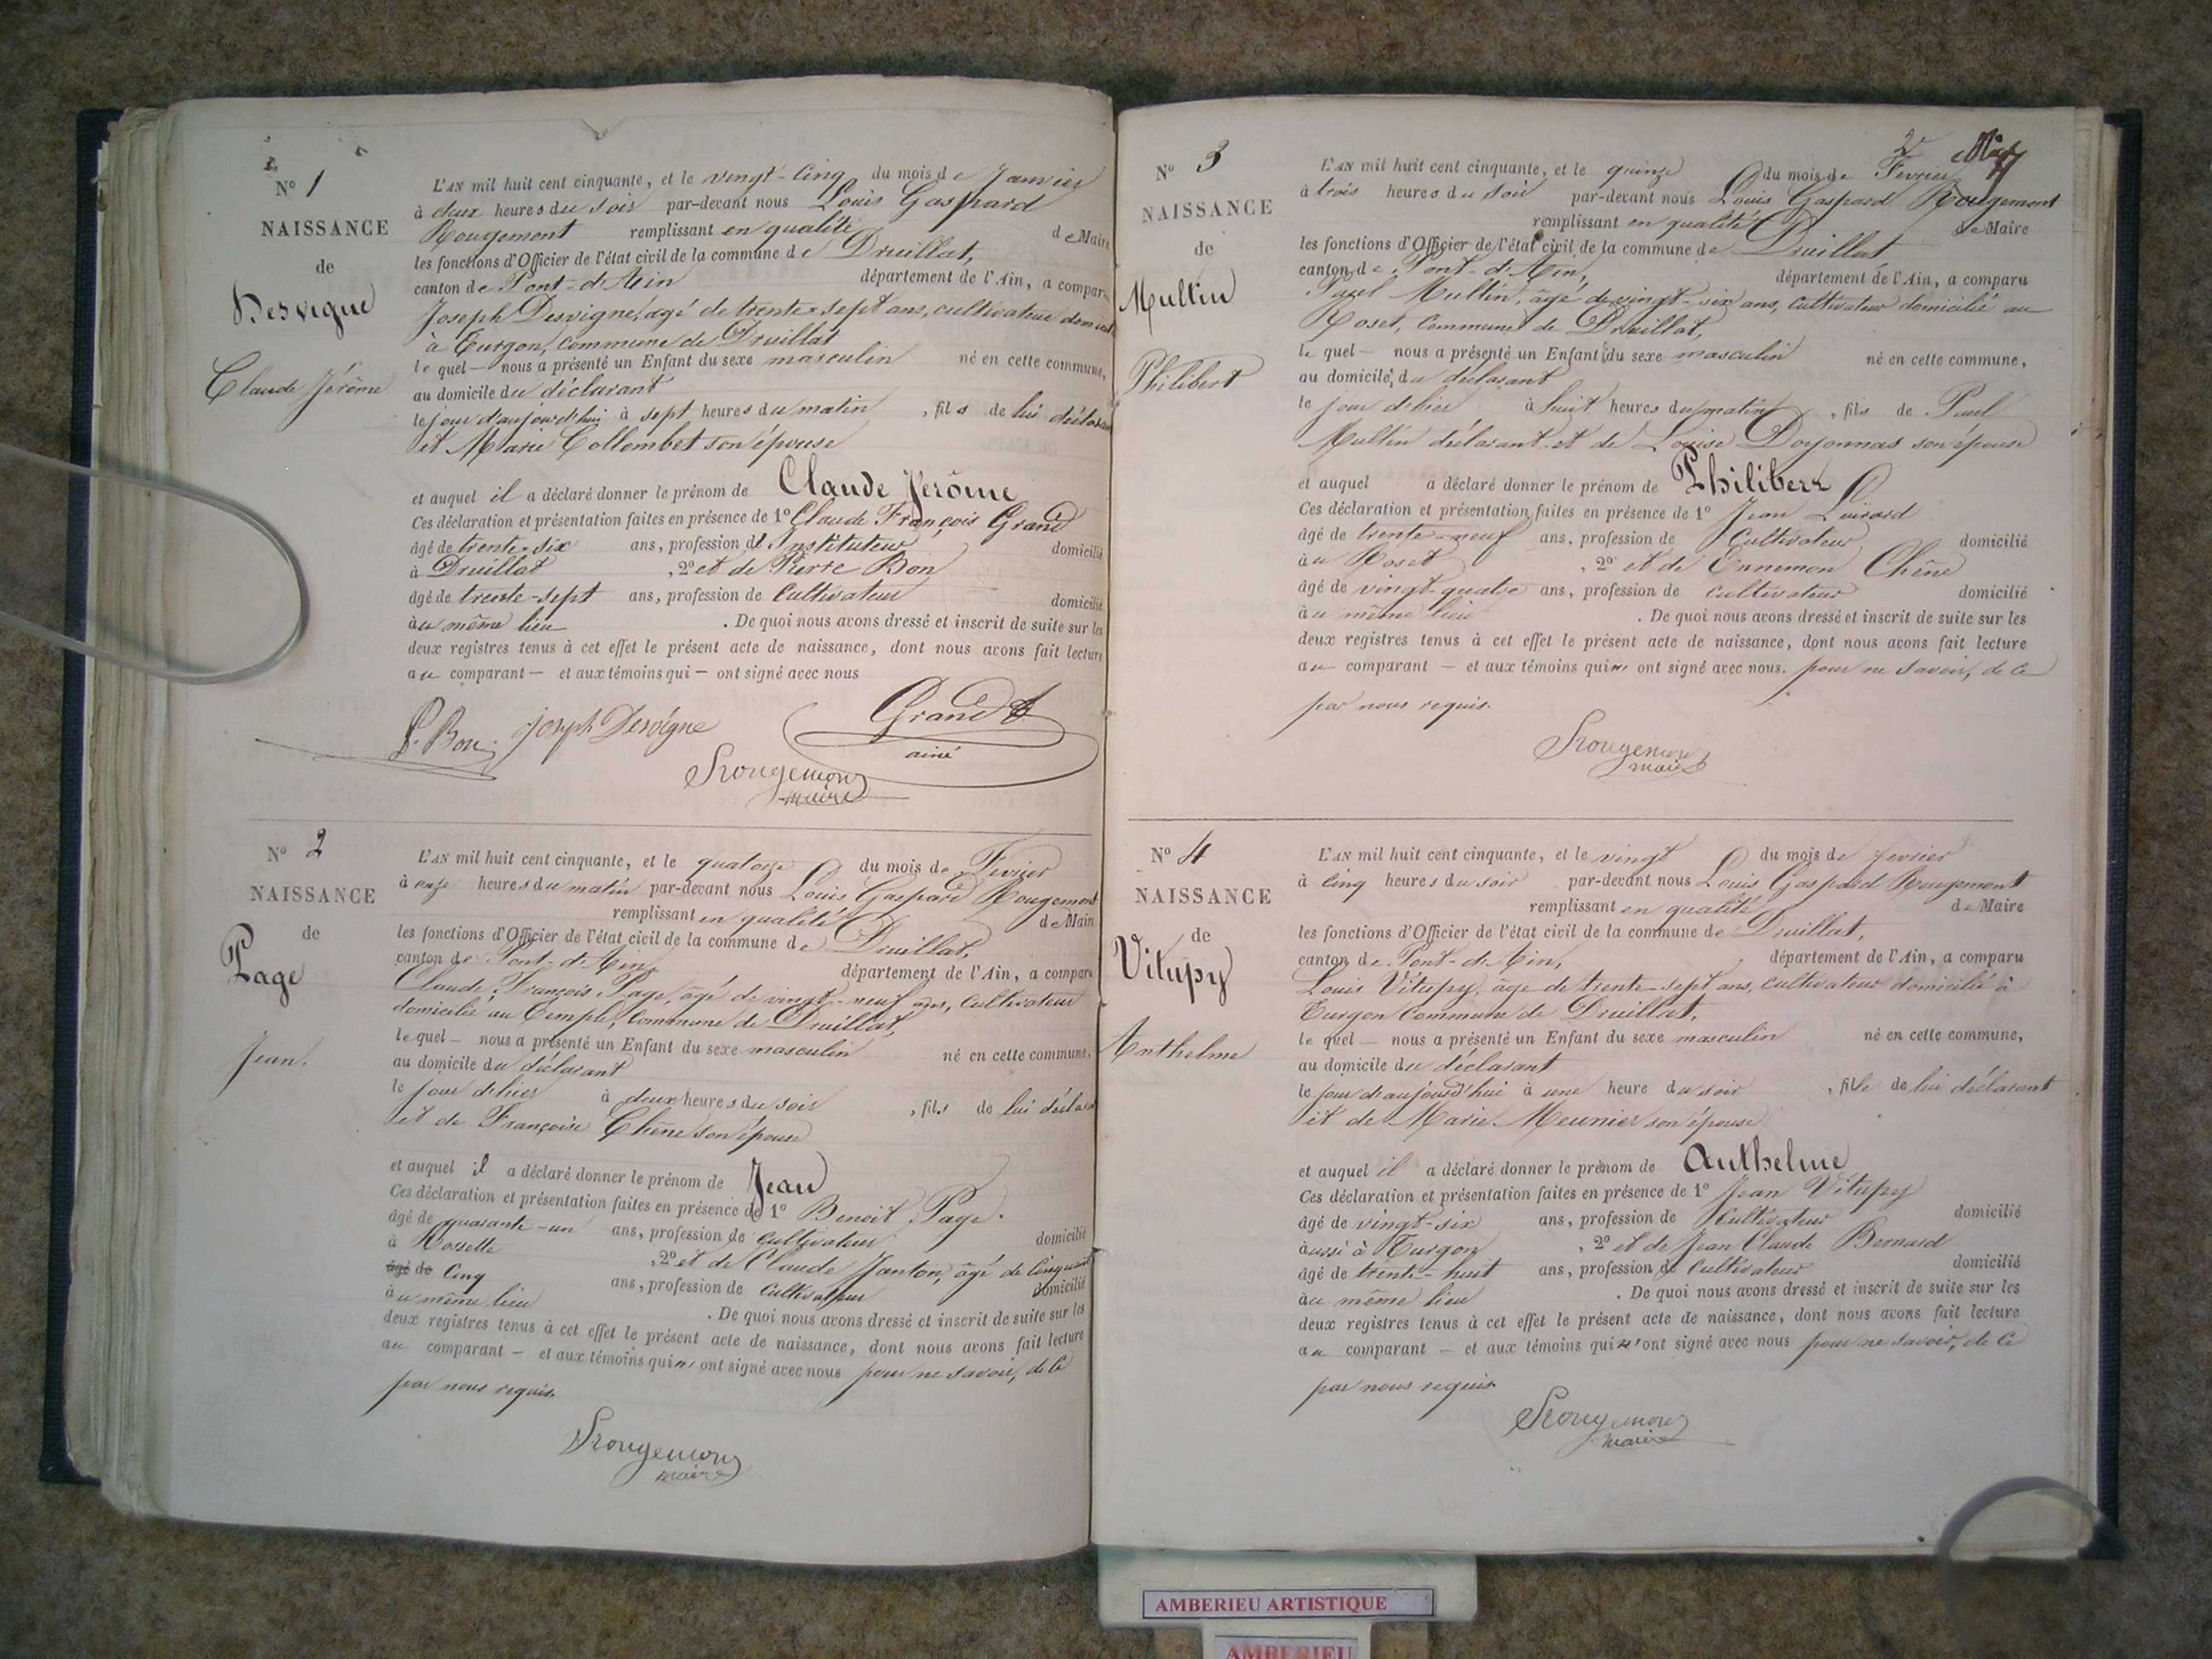 N° 1
NAISSANCE
de
Desvigne
Claude Jérôme
L'AN mil huit cent cinquante, et le vingt-cinq du mois de Janvier
à deux heures du soir par-devant nous Louis Gaspard
Rougemont remplissant en qualité de Maire
les fonctions d'Officier de l'état civil de la commune de Druillat,
canton de Pont-d'Ain département de l'Ain, a compar
Joseph Desvigne, âgé de trente-sept ans, cultivateur domicil
à Turgon, Commune de Druillat
le quel — nous a présenté un Enfant du sexe masculin né en cette commune,
au domicile du déclarant
le jour d'aujourd'hui à sept heures du matin , fils de lui déclarant
et Marie Collombet son épouse
et auquel il a déclaré donner le prénom de Claude Jérôme
Ces déclaration et présentation faites en présence de 1° Claude François Grand
âgé de trente-six ans, profession d'Instituteur domicilié
à Druillat , 2° et de Pierre Bon
âgé de trente-sept ans, profession de Cultivateur domicilié
au même lieu . De quoi nous avons dressé et inscrit de suite sur les
deux registres tenus à cet effet le présent acte de naissance, dont nous avons fait lecture
au comparant — et aux témoins qui — ont signé avec nous
P. Bon Joseph Desvigne Grand
ainé
Rougemont
maire
N° 2
NAISSANCE
de
Page
Jean.
L'AN mil huit cent cinquante, et le quatorze du mois de Fevrier
à onze heures du matin par-devant nous Louis Gaspard Rougemont
remplissant en qualité de Maire
les fonctions d'Officier de l'état civil de la commune de Druillat,
canton de Pont-d'Ain département de l'Ain, a comparu
Claude François Page, âgé de vingt-neuf ans, Cultivateur
domicilié au Temple, Commune de Druillat,
le quel — nous a présenté un Enfant du sexe masculin né en cette commune,
au domicile du déclarant
le jour d'hier à deux heures du soir , fils de lui déclarant
et de Françoise Chêne son épouse
et auquel il a déclaré donner le prénom de Jean
Ces déclaration et présentation faites en présence de 1° Benoit Page.
âgé de quarante-un ans, profession de cultivateur domicilié
à Rossette , 2° et de Claude Janton, âgé de Cinquante
âgé de Cinq ans, profession de Cultivateur domicilié
au même lieu . De quoi nous avons dressé et inscrit de suite sur les
deux registres tenus à cet effet le présent acte de naissance, dont nous avons fait lecture
au comparant — et aux témoins qui n'ont signé avec nous pour ne savoir, de ce
par nous requis.
Rougemont
maire
2e
N° 3
NAISSANCE
de
Multin
Philibert
L'AN mil huit cent cinquante, et le quinze du mois de Fevrier
à trois heures du soir par-devant nous Louis Gaspard Rougemont
remplissant en qualité de Maire
les fonctions d'Officier de l'état civil de la commune de Druillat
canton de Pont-d'Ain, département de l'Ain, a comparu
Paul Multin, âgé de vingt-six ans, Cultivateur domicilié au
Roset, Commune de Druillat,
le quel — nous a présenté un Enfant du sexe masculin né en cette commune,
au domicile du déclarant
le jour d'hier à huit heures du matin , fils de Paul
Multin déclarant et de Louise Doyonnas son épouse
et auquel a déclaré donner le prénom de Philibert
Ces déclaration et présentation faites en présence de 1° Jean Luirard
âgé de trente-neuf ans, profession de Cultivateur domicilié
au Roset , 2° et de Ennemon Chêne
âgé de vingt-quatre ans, profession de cultivateur domicilié
au même lieu . De quoi nous avons dressé et inscrit de suite sur les
deux registres tenus à cet effet le présent acte de naissance, dont nous avons fait lecture
au comparant — et aux témoins qui n'ont signé avec nous. pour ne savoir, de ce
par nous requis.
Rougemont
maire
N° 4
NAISSANCE
de
Vitupy
Anthelme
L'AN mil huit cent cinquante, et le vingt du mois de fevrier
à cinq heures du soir par-devant nous Louis Gaspard Rougemont
remplissant en qualité de Maire
les fonctions d'Officier de l'état civil de la commune de Druillat,
canton de Pont-d'Ain, département de l'Ain, a comparu
Louis Vitupy, âgé de trente-sept ans, cultivateur domicilié à
Turgon Commune de Druillat,
le quel — nous a présenté un Enfant du sexe masculin né en cette commune,
au domicile du déclarant
le jour d'aujourd'hui à une heure du soir , fils de lui déclarant
et de Marie Meunier son épouse
et auquel il a déclaré donner le prénom de Anthelme
Ces déclaration et présentation faites en présence de 1° Jean Vitupy
âgé de vingt-six ans, profession de Cultivateur domicilié
aussi à Turgon , 2° et de Jean Claude Bernard
âgé de trente-huit ans, profession de Cultivateur domicilié
au même lieu . De quoi nous avons dressé et inscrit de suite sur les
deux registres tenus à cet effet le présent acte de naissance, dont nous avons fait lecture
au comparant — et aux témoins qui n'ont signé avec nous pour ne savoir, de ce
par nous requis.
Rougemont
maire
AMBERIEU ARTISTIQUE
AMBERIEU